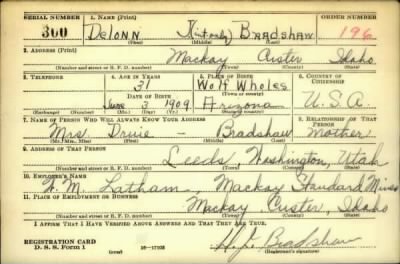 SERIAL NUMBER 1. NAME (Print) ORDER NUMBER
360 Delonn (Kimberly) Bradshaw 196
(First) (Middle) (Last)
2. ADDRESS (Print)
Mackay Custer Idaho
(Number and street or R. F. D. number) (Town) (County) (State)
3. TELEPHONE 4. AGE IN YEARS 5. PLACE OF BIRTH 6. COUNTRY OF CITIZENSHIP
31 Wolf Wholes
DATE OF BIRTH (Town or county)
June 3 1909 Arizona U.S.A.
(Exchange) (Number) (Mo.) (Day) (Yr.) (State or country)
7. NAME OF PERSON WHO WILL ALWAYS KNOW YOUR ADDRESS 8. RELATIONSHIP OF THAT PERSON
Mrs. Druie - Bradshaw Mother
(Mr., Mrs., Miss) (First) (Middle) (Last)
9. ADDRESS OF THAT PERSON
Leeds, Washington, Utah
(Number and street or R. F. D. number) (Town) (County) (State)
10. EMPLOYER'S NAME
W. M. Latham, Mackay Standard Mines
11. PLACE OF EMPLOYMENT OR BUSINESS
Mackay Custer, Idaho
(Number and street or R. F. D. number) (Town) (County) (State)
I AFFIRM THAT I HAVE VERIFIED ABOVE ANSWERS AND THAT THEY ARE TRUE.
REGISTRATION CARD
D. S. S. Form 1 16-17105 Bradshaw
(Registrant's signature)